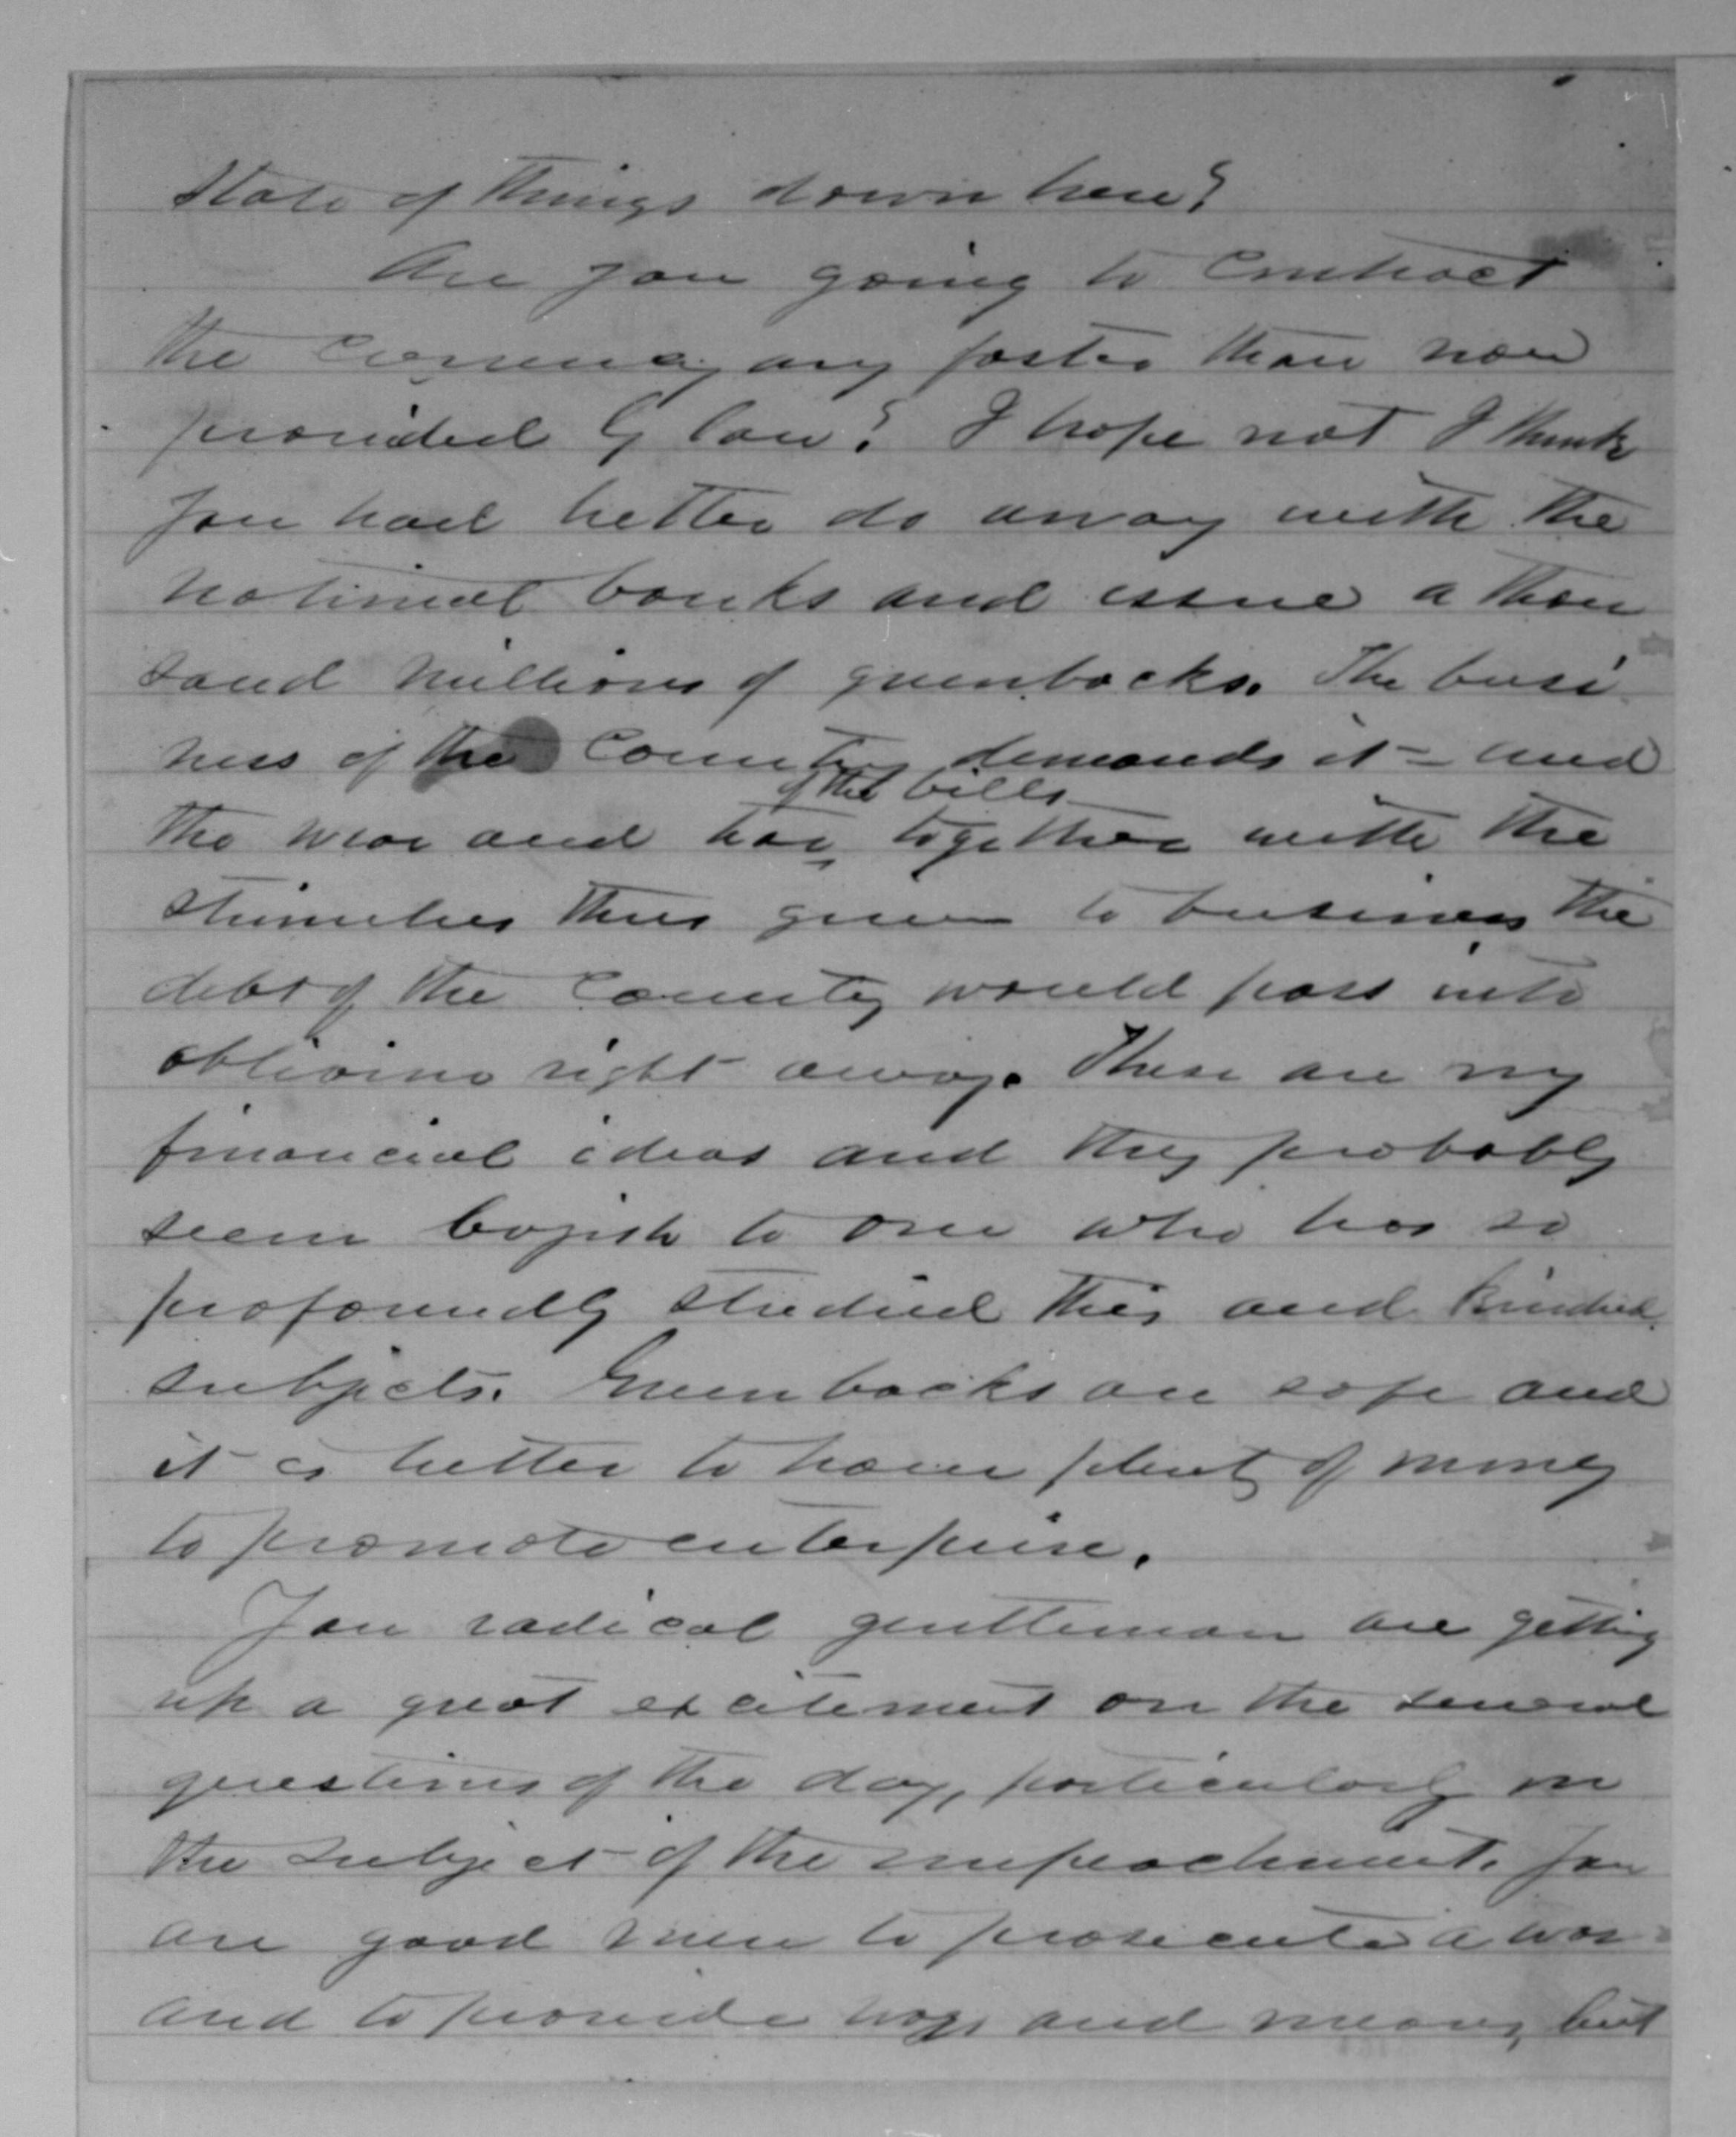 state of things down here?
Are you going to contract
the currency any faster than now
provided by law? I hope not I think
you had better do away with the
national banks and issue a thou
sand millions of greenbacks. The busi
ness of the country demands it – and
of the bills
the wear and tear together with the
stimulus thus given to business the
debt of the country would pass into
oblivion right away. These are my
financial ideas and they probably
seem boyish to one who has so
profoundly studied this and kindred
subjects. Greenbacks are safe and
it is better to have plenty of money
to promote enterprise.
You radical gentlemen are getting
up a great excitement on the several
questions of the day, particularly on
the subject of the impeachment. You
are good men to prosecute a war
and to provide ways and means, but